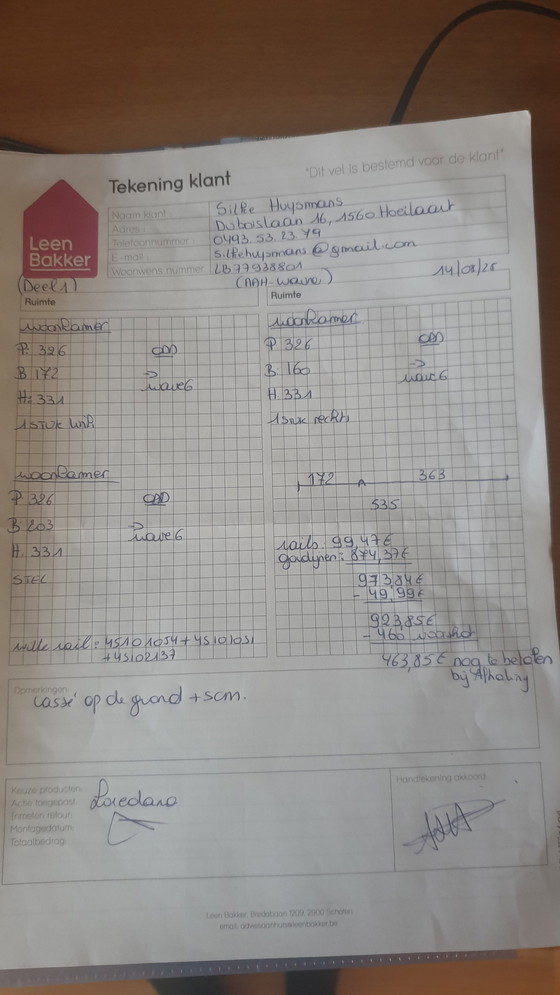 Tekening klant
"Dit vel is bestemd voor de klant"
Leen
Bakker
Naam klant: Silke Huysmans
Adres: Duboislaan 16, 1560 Hoeilaart
Telefoonnummer: 0493.53.23.79
E-mail: silkehuysmans@gmail.com
Woonwens nummer LB77938801
(Deel 1)
(AAH-Wavre)
14/08/25
Ruimte
woonkamer
P: 326
B: 172
H: 331
→ wave6
1 STUK links
Ruimte
woonkamer
P. 326
B: 160
H. 331
→ wave 6
1 stuk rechts
woonkamer
P. 326
B: 203
H. 331
→ wave6
STEL
witte rail: 45101054 + 45101051
+ 45102137
172
363
535
rails 99,47€
gordijnen: 874,37€
973,84€
- 49,99€
923,85€
- 460 voorschot
463,85€ nog te betalen
bij Afhaling
Opmerkingen
cassé op de grond + 5cm.
Keuze producten:
Actie toegepast:
Trimeten retour:
Montagedatum:
Totaalbedrag:
Loredana
Handtekening akkoord:
Leen Bakker, Bredabaan 1209, 2900 Schoten